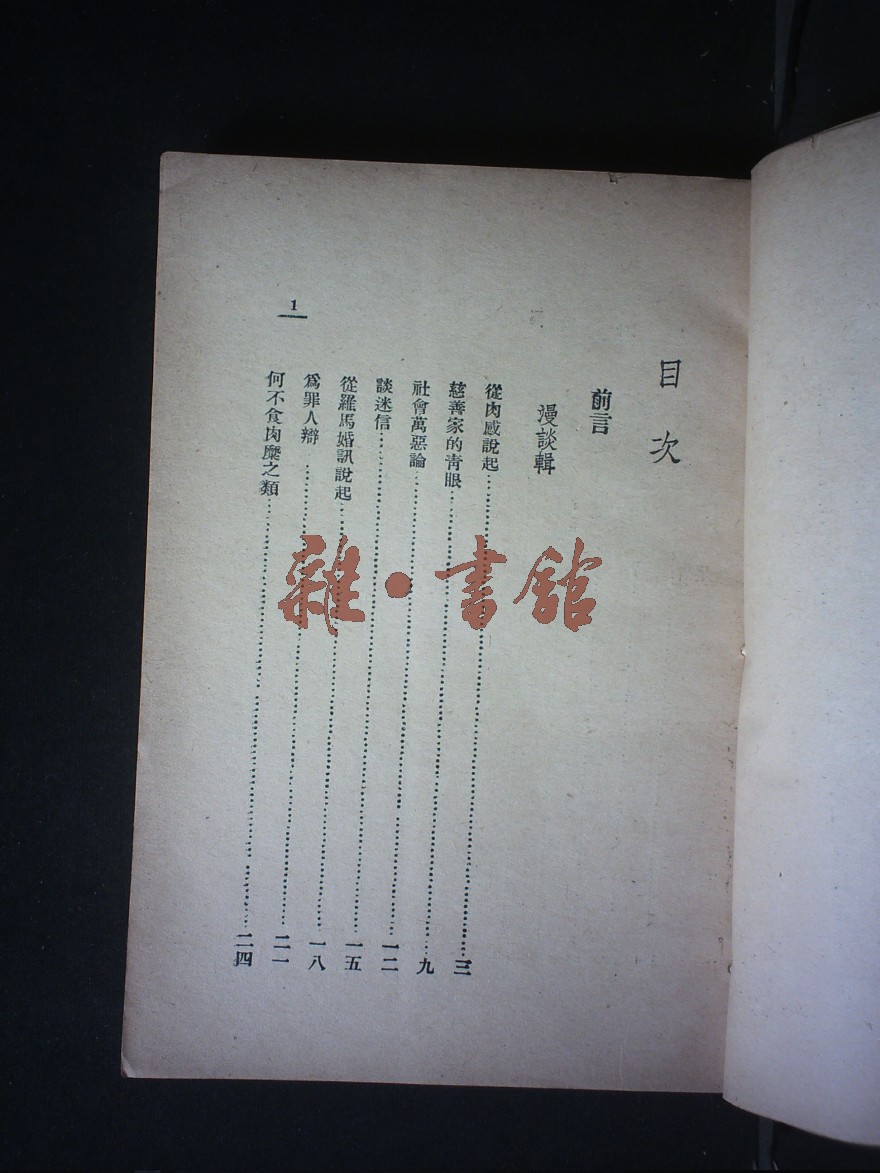 目次
前言
漫談輯
從肉感說起……三
慈善家的青眼……九
社會萬惡論……一二
談迷信……一五
從羅馬婚訊說起……一八
爲罪人辯……二一
何不食肉糜之類……二四
1
雜•書館